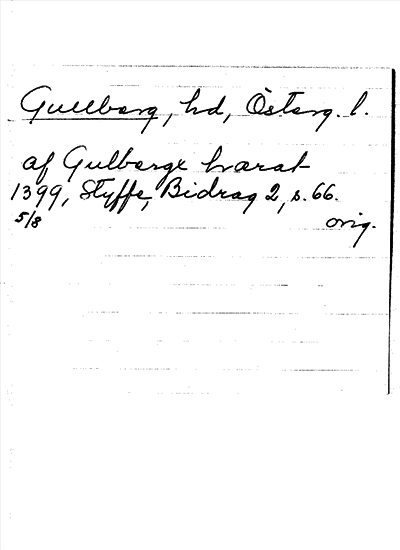 Gullberg, hd, Österg. l.
af Gulberge hærat
1399, Styffe, Bidrag 2, s. 66.
5/8 orig.